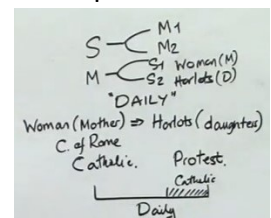 S M1
M2
M S1 Woman (M)
S2 Harlots (D)
"DAILY"
Woman (Mother) ⇒ Harlots (daughters)
C. of Rome
Catholic. Protest.
Catholic
Daily